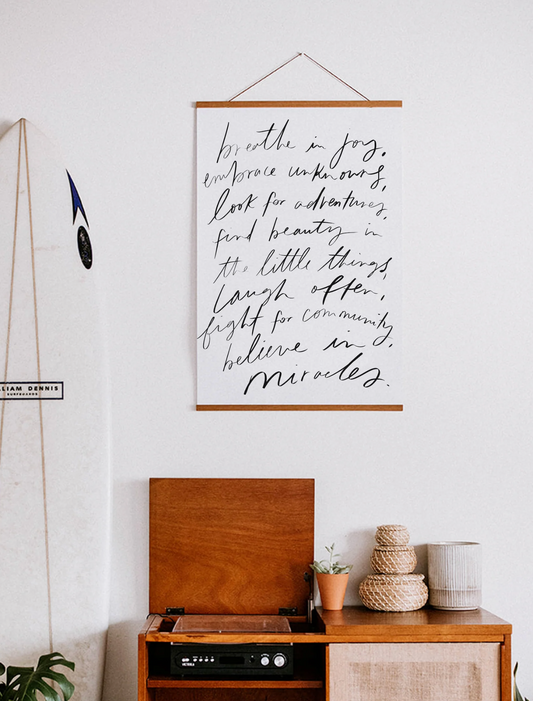 breathe in joy,
embrace unknowns,
look for adventures,
find beauty in
the little things,
laugh often,
fight for community,
believe in
miracles.
LIAM DENNIS
SURFBOARDS